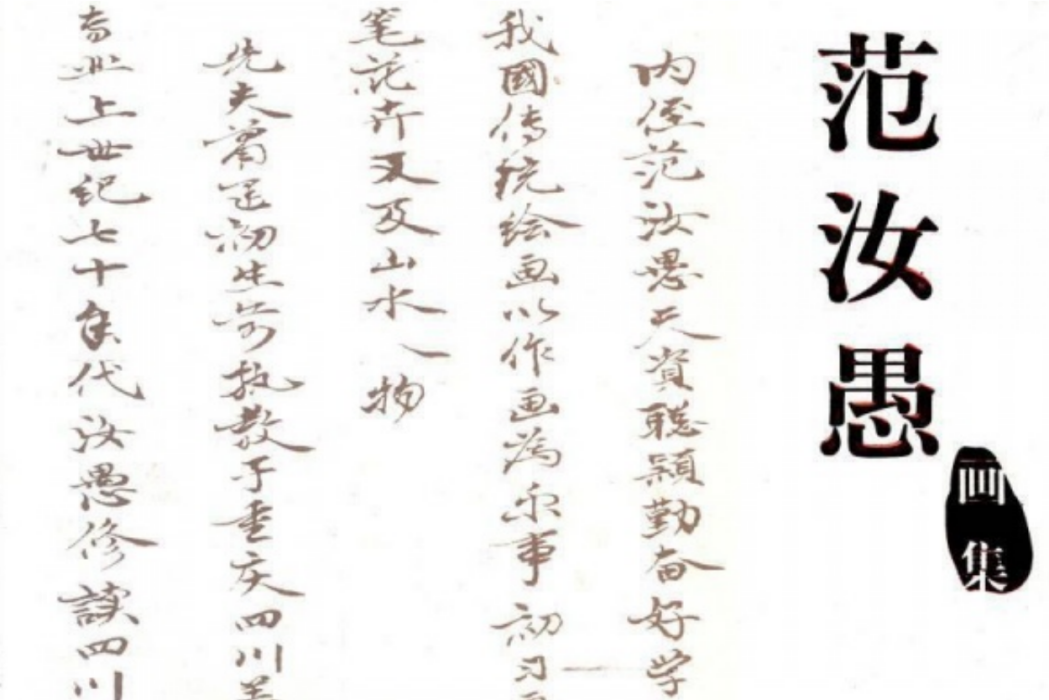 范汝愚
画集
内侄范汝愚天資聪颖勤奋好学
我國传统绘画以作画為乐事初习
笔花卉又及山水人物
先夫萧建初生前执教于重庆四川美
专业上世纪七十年代汝愚修读四川